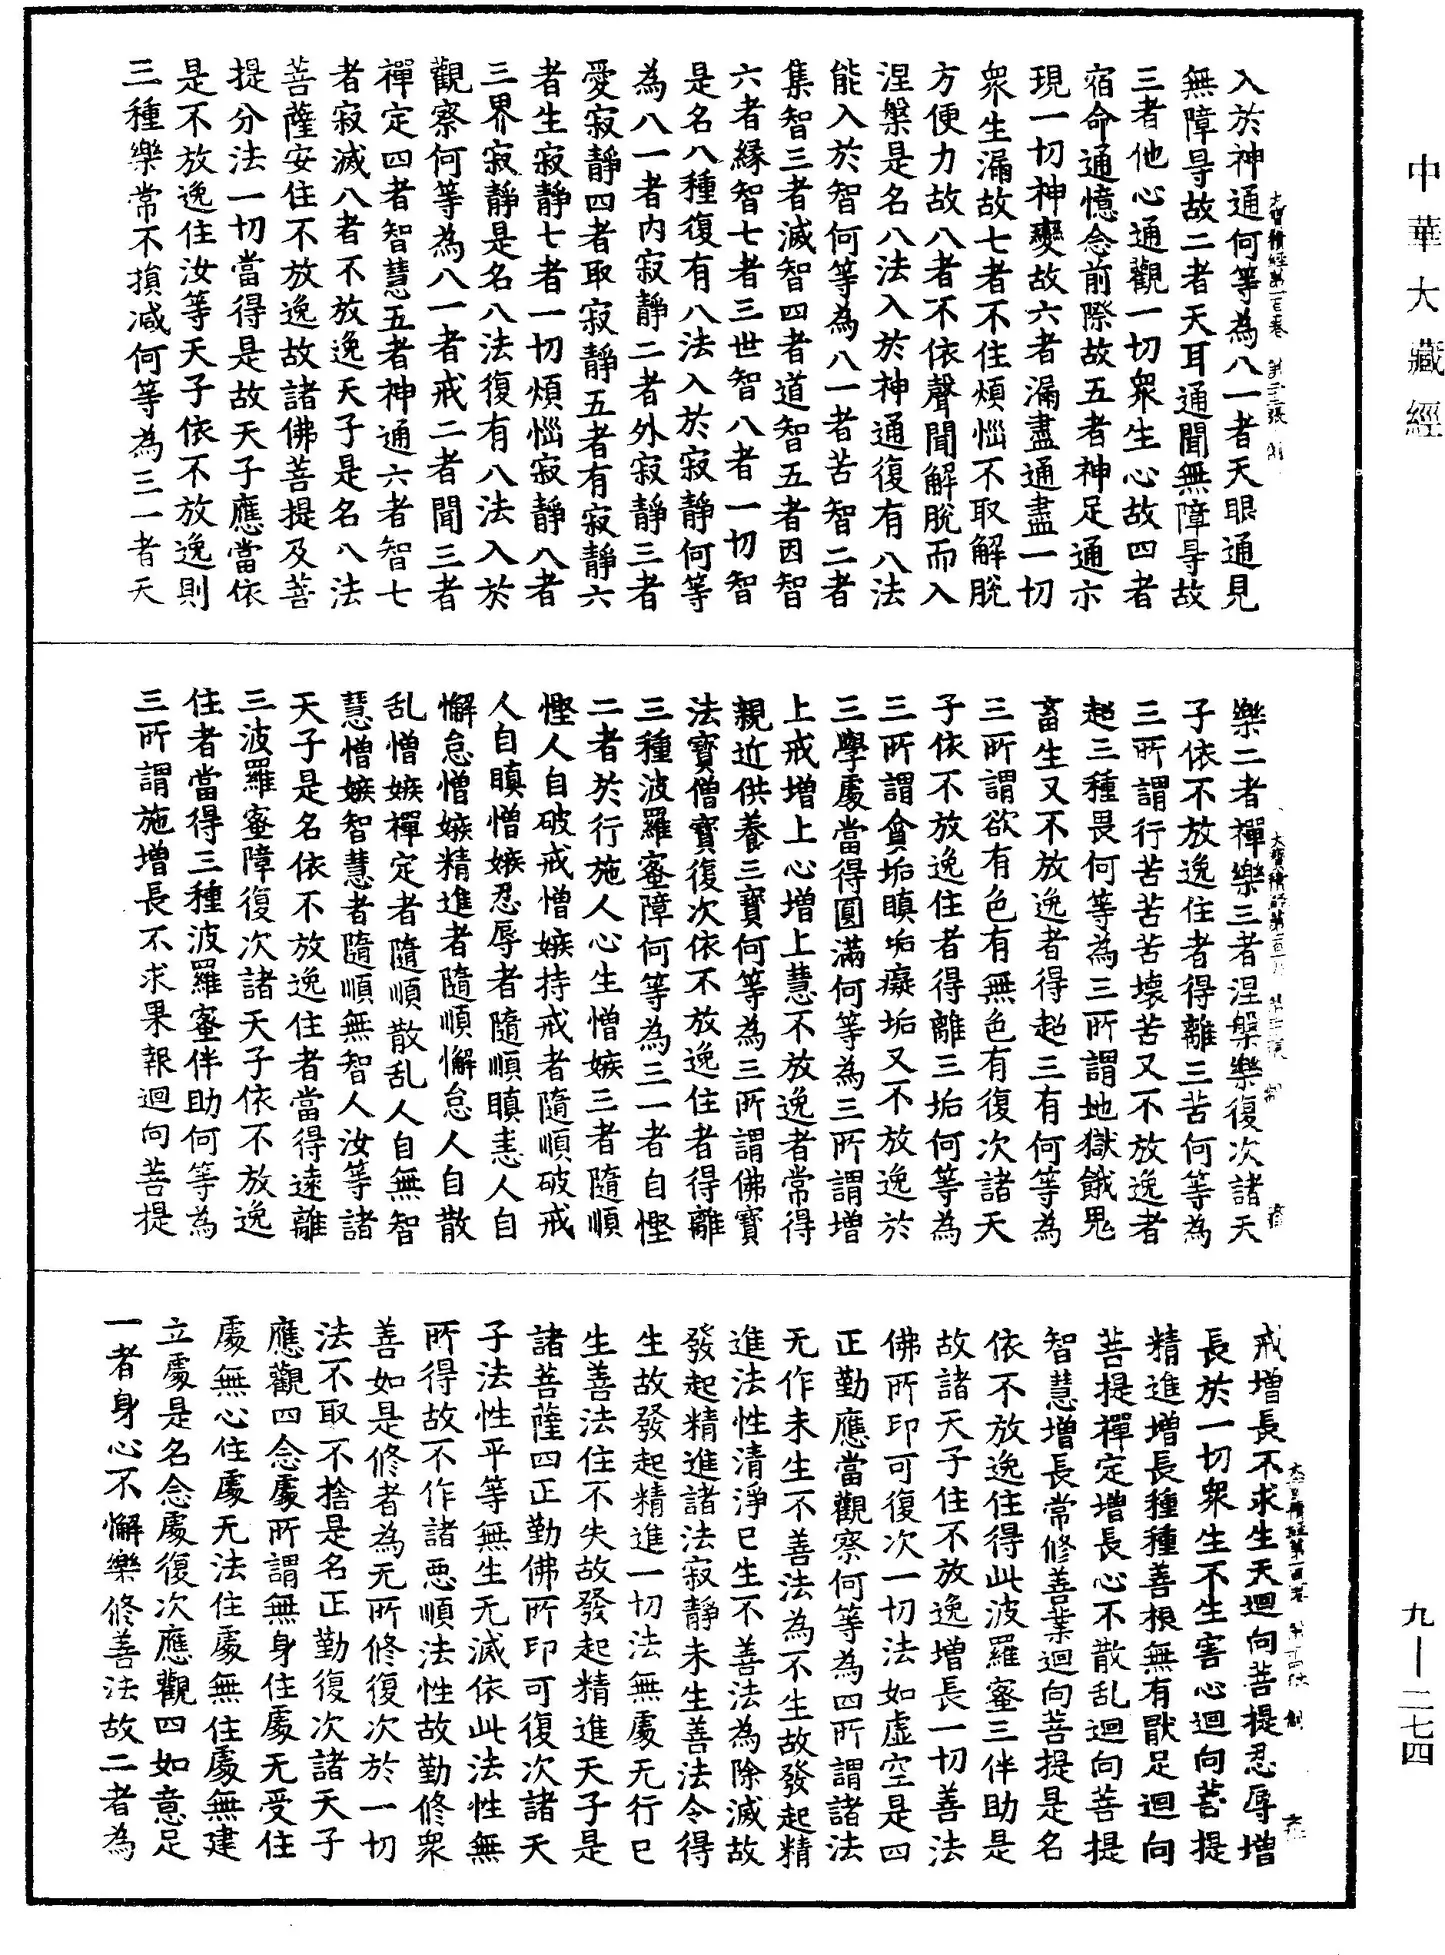 中華大藏經
入於神通何等為八一者天眼通見
無障㝵故二者天耳通聞無障㝵故
三者他心通觀一切衆生心故四者
宿命通憶念前際故五者神足通示
現一切神變故六者漏盡通盡一切
衆生漏故七者不住煩惱不取解脫
方便力故八者不依聲聞解脫而入
涅槃是名八法入於神通復有八法
能入於智何等為八一者苦智二者
集智三者滅智四者道智五者因智
六者緣智七者三世智八者一切智
是名八種復有八法入於寂靜何等
為八一者內寂靜二者外寂靜三者
愛寂靜四者取寂靜五者有寂靜六
者生寂靜七者一切煩惱寂靜八者
三界寂靜是名八法復有八法入於
觀察何等為八一者戒二者聞三者
禪定四者智慧五者神通六者智七
者寂滅八者不放逸天子是名八法
菩薩安住不放逸故諸佛菩提及菩
提分法一切當得是故天子應當依
是不放逸住汝等天子依不放逸則
三種樂常不損減何等為三一者天
樂二者禪樂三者涅槃樂復次諸天
子依不放逸住者得離三苦何等為
三所謂行苦苦苦壞苦又不放逸者
超三種畏何等為三所謂地獄餓鬼
畜生又不放逸者得超三有何等為
三所謂欲有色有無色有復次諸天
子依不放逸住者得離三垢何等為
三所謂貪垢瞋垢癡垢又不放逸於
三學處當得圓滿何等為三所謂增
上戒增上心增上慧不放逸者常得
親近供養三寶何等為三所謂佛寶
法寶僧寶復次依不放逸住者得離
三種波羅蜜障何等為三一者自慳
二者於行施人心生憎嫉三者隨順
慳人自破戒憎嫉持戒者隨順破戒
人自瞋憎嫉忍辱者隨順瞋恚人自
懈怠憎嫉精進者隨順懈怠人自散
乱憎嫉禪定者隨順散乱人自無智
慧憎嫉智慧者隨順無智人汝等諸
天子是名依不放逸住者當得遠離
三波羅蜜障復次諸天子依不放逸
住者當得三種波羅蜜伴助何等為
三所謂施增長不求果報迴向菩提
戒增長不求生天迴向菩提忍辱增
長於一切衆生不生害心迴向菩提
精進增長種種善根無有猒足迴向
菩提禪定增長心不散乱迴向菩提
智慧增長常修善業迴向菩提是名
依不放逸住得此波羅蜜三伴助是
故諸天子住不放逸增長一切善法
佛所印可復次一切法如虛空是四
正勤應當觀察何等為四所謂諸法
无作未生不善法為不生故發起精
進法性清淨已生不善法為除滅故
發起精進諸法寂靜未生善法令得
生故發起精進一切法無處无行已
生善法住不失故發起精進天子是
諸菩薩四正勤佛所印可復次諸天
子法性平等無生无滅依此法性無
所得故不作諸惡順法性故勤修衆
善如是修者為无所修復次於一切
法不取不捨是名正勤復次諸天子
應觀四念處所謂無身住處无受住
處無心住處无法住處無住處無建
立處是名念處復次應觀四如意足
一者身心不懈樂修善法故二者為
九—二七四